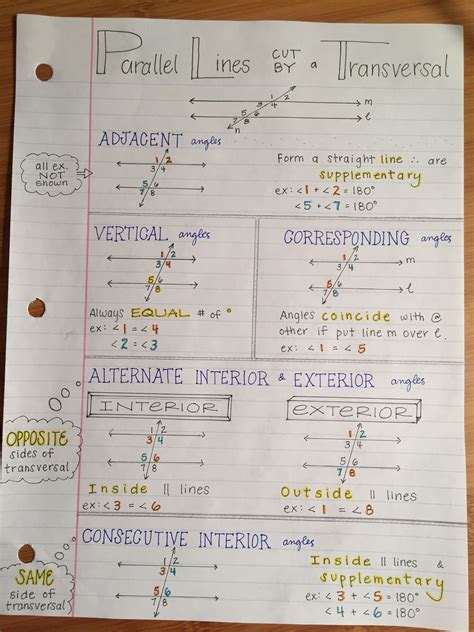 Parallel Lines CUT BY a Transversal
1 2
3 4
5 6
7 8
m
l
n
ADJACENT angles
all ex.
NOT
shown
1 2
3 4
5 6
7 8
Form a straight line ∴ are
supplementary
ex: <1 + <2 = 180°
<5 + <7 = 180°
VERTICAL angles
1 2
3 4
5 6
7 8
Always EQUAL # of °
ex: <1 = <4
<2 = <3
CORRESPONDING angles
1 2
3 4
m
5 6
7 8
l
Angles coincide with @
other if put line m over l.
ex: <1 = <5
ALTERNATE INTERIOR & EXTERIOR angles
OPPOSITE
sides of
transversal
INTERIOR
1 2
3 4
5 6
7 8
Inside || lines
ex: <3 = <6
EXTERIOR
1 2
3 4
5 6
7 8
Outside || lines
ex: <1 = <8
CONSECUTIVE INTERIOR angles
SAME
side of
transversal
1 2
3 4
5 6
7 8
Inside || lines &
supplementary
ex: <3 + <5 = 180°
<4 + <6 = 180°